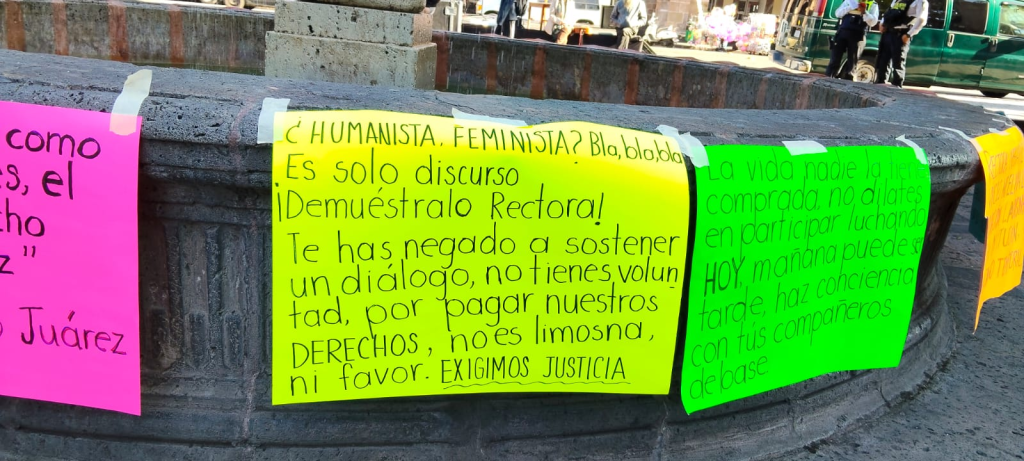 como
es, el
cho
z"
o Juárez
¿HUMANISTA, FEMINISTA? Bla,bla,bla
Es solo discurso
¡Demuéstralo Rectora!
Te has negado a sostener
un diálogo, no tienes volun
tad, por pagar nuestros
DERECHOS, no es limosna,
ni favor. EXIGIMOS JUSTICIA
La vida nadie la tiene
comprada, no dilates
en participar luchando
HOY, mañana puede ser
tarde, haz conciencia
con tus compañeros
de base